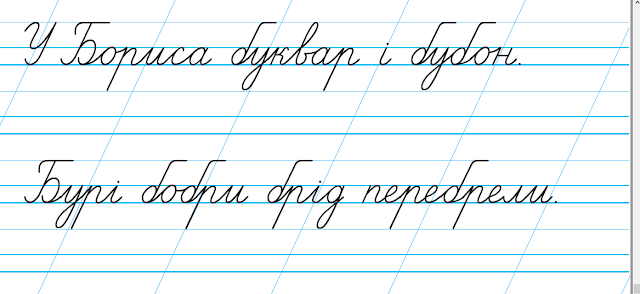 У Бориса буквар і бубон.
Бурі бобри брід перебрели.